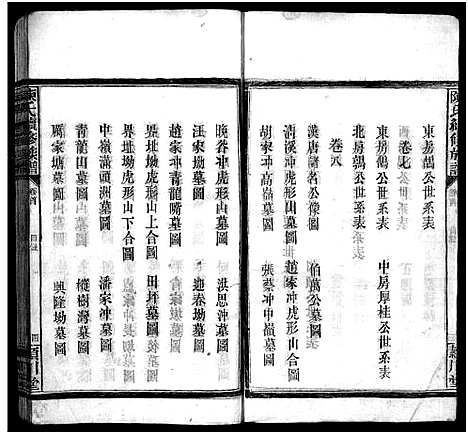 陳氏續修族譜
東房鶴公世系表
卷七
東房鶴公世系表 中房厚桂公世系表
卷八
漢唐諸名公像圖 伯萬公墓圖
清溪冲虎形山墓圖 趙家冲虎形山合圖
胡家冲高嶺墓圖 張蔡冲中嶺墓圖
晚谷冲虎形山墓圖 洪思冲墓圖
汪家墩墓圖 迎春坳墓圖
趙家冲青龍嘴墓圖
畢家坳虎形山上合圖 田坪墓圖
畢家坳虎形山下合圖
中嶺瀟頭洲墓圖 潘家冲墓圖
青龍山墓圖 樅樹灣墓圖
嚴家塘墓圖 興隆坳墓圖
陳氏續修族譜 卷首 目錄 四 潁川堂